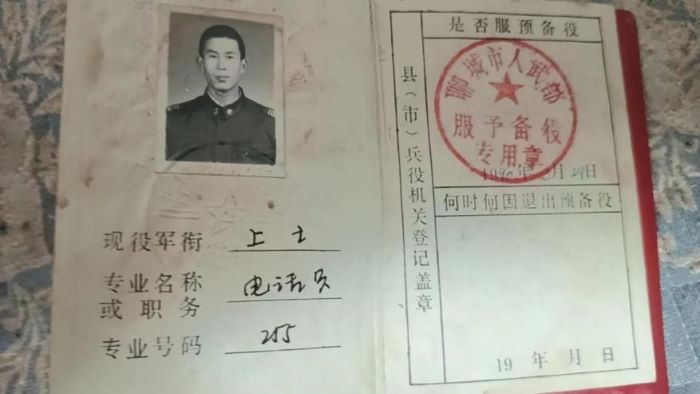 现役军衔 上士
专业名称
或职务 电话员
专业号码 255
县（市）兵役机关登记盖章
是否服预备役
聊城市人武部
服予备役
专用章
1990年 月29日
何时何因退出预备役
19 年 月 日